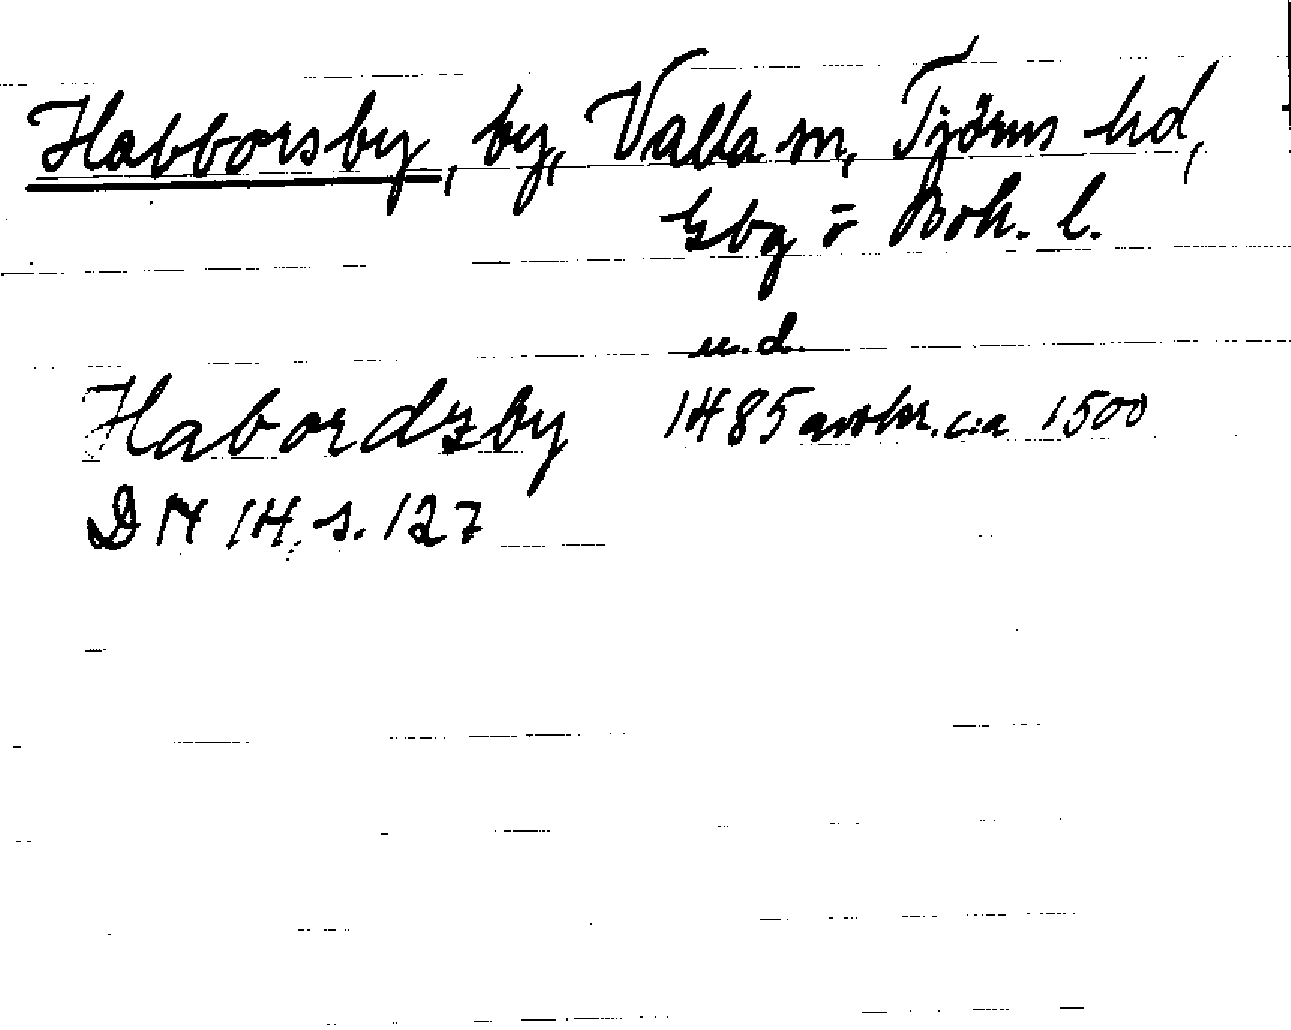 Habborsby, by, Valla sn, Tjörns hd,
Gbg o Boh. l.
u.d.
Habordzby 1485 avskr. c:a 1500
DN 14, s. 127